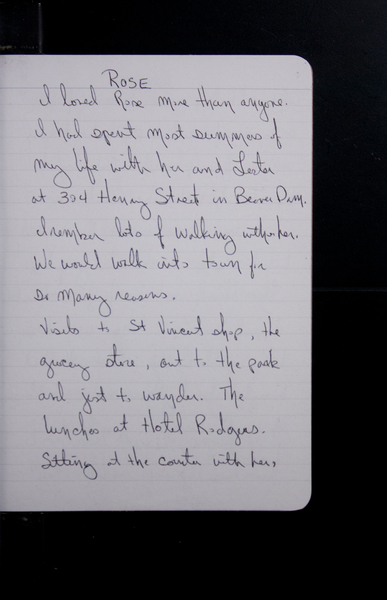 ROSE
I loved Rose more than anyone.
I had spent most summers of
my life with her and Lester
at 304 Henry Street in Beaver Dam.
I remember lots of walking with her.
We would walk into town for
so many reasons.
Visits to St Vincent shop, the
grocery store, out to the park
and just to wander. The
lunches at Hotel Rodgers.
Sitting at the counter with her,